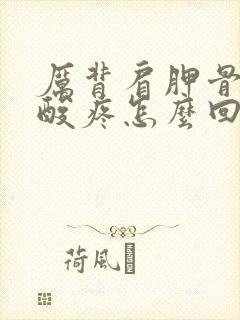 厝背肩胛骨
酸疼怎麼回
荷風